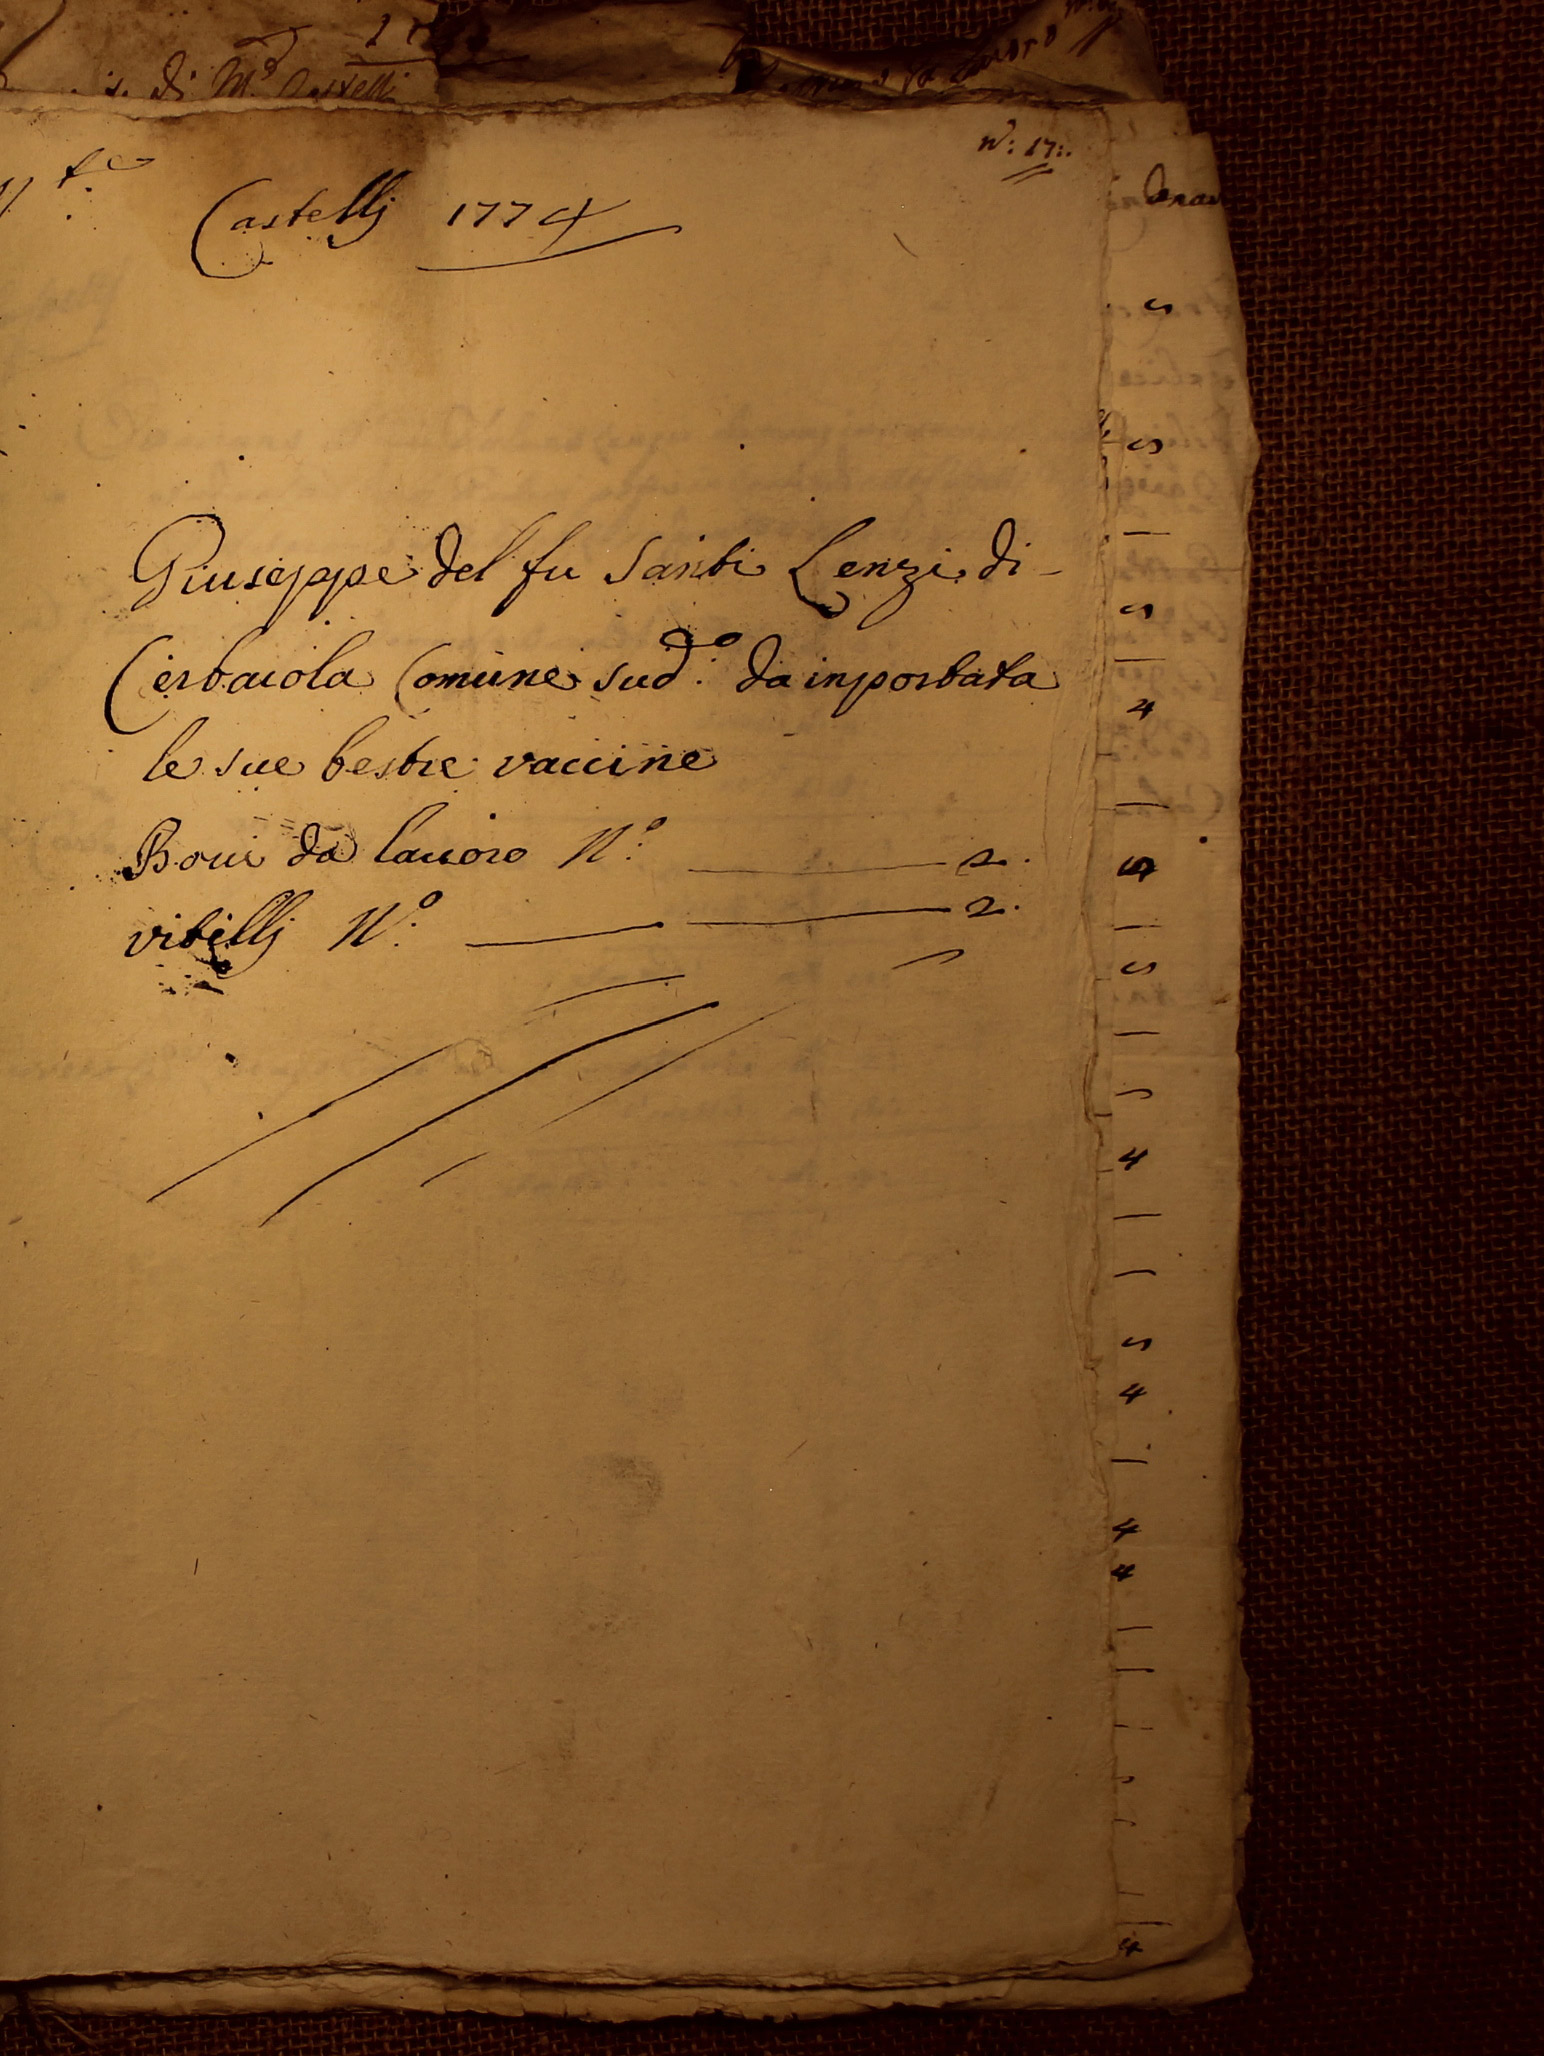 di M.º Castelli
N.º: 17:.
Castellj 1774
Giuseppe del fu Santi Lenzi di -
Cerbaiola Comune sud.º da inportata
le sue bestie vaccine
Boui da lauoro N.º 2.
vitellj N.º 2.
4
4
4
4
4
4